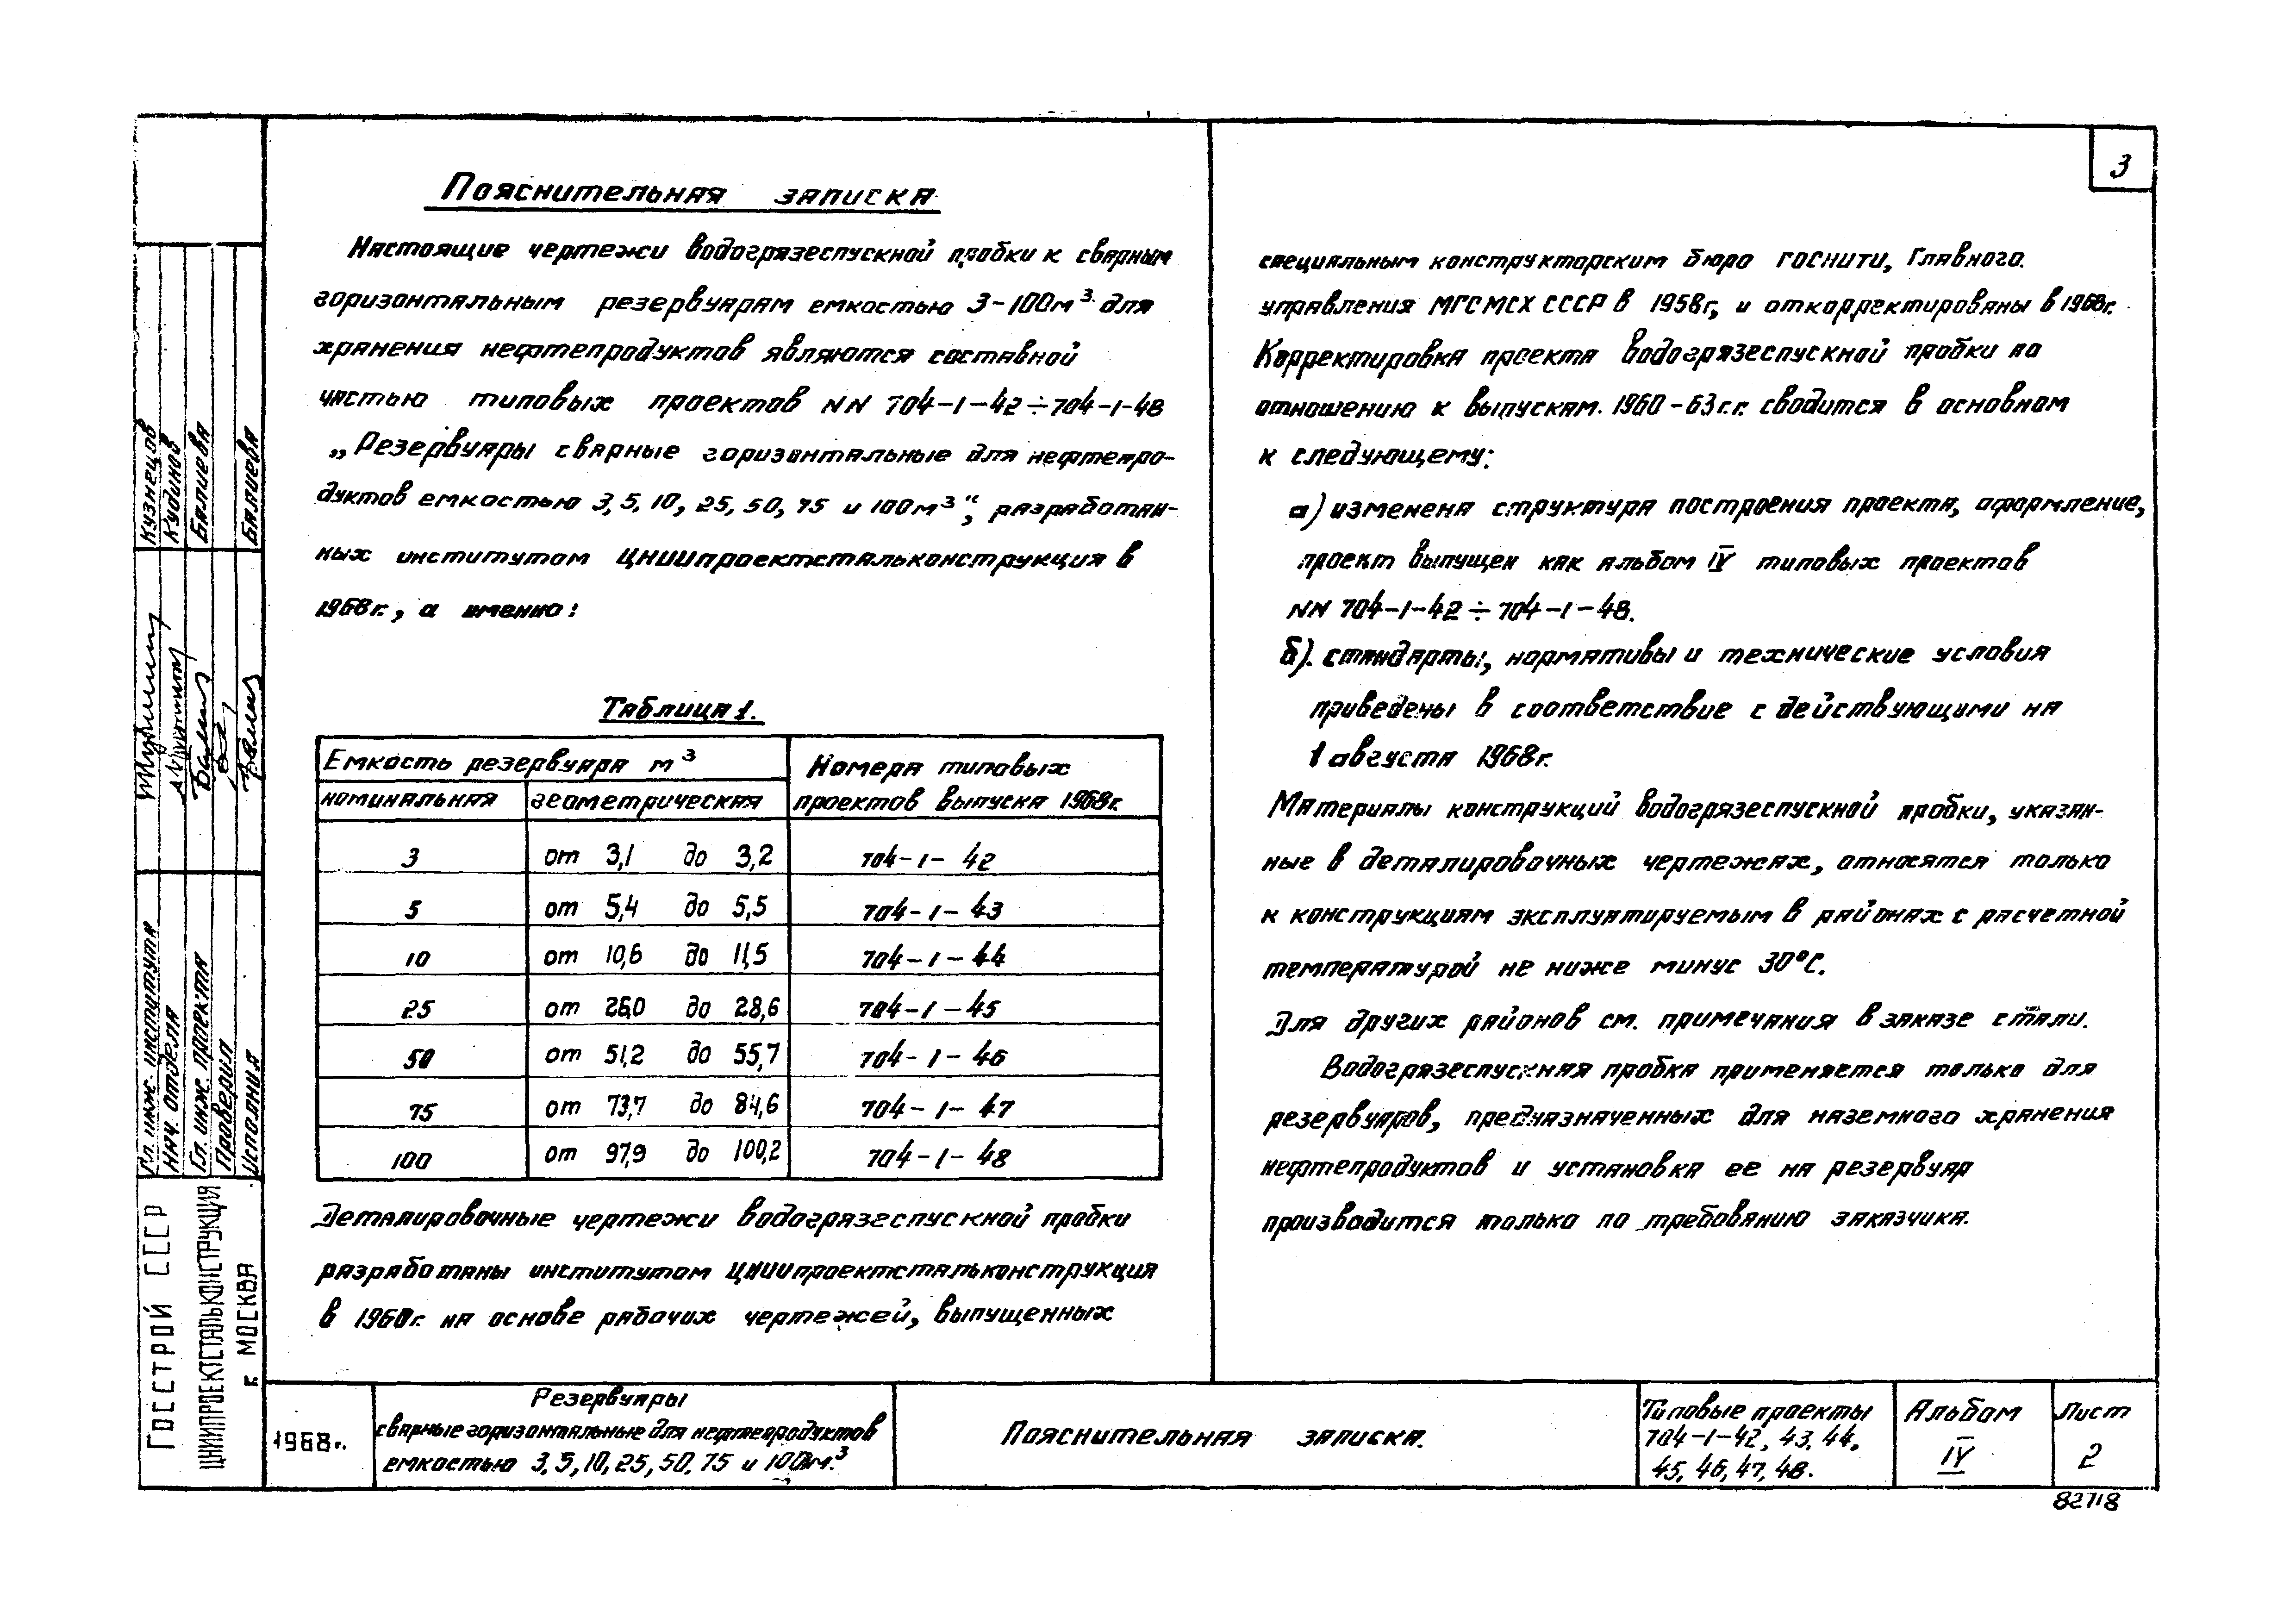 3
Пояснительная записка
Настоящие чертежи водогрязеспускной пробки к сварным
горизонтальным резервуарам емкостью 3-100м³ для
хранения нефтепродуктов являются составной
частью типовых проектов NN 704-1-42÷704-1-48
„Резервуары сварные горизонтальные для нефтепро-
дуктов емкостью 3, 5, 10, 25, 50, 75 и 100м³“, разработан-
ных институтом ЦНИИпроектстальконструкция в
1968г., а именно:
Таблица 1.
Емкость резервуара м³ Номера типовых
номинальная геометрическая проектов выпуска 1968г.
3 от 3,1 до 3,2 704-1-42
5 от 5,4 до 5,5 704-1-43
10 от 10,6 до 11,5 704-1-44
25 от 26,0 до 28,6 704-1-45
50 от 51,2 до 55,7 704-1-46
75 от 73,7 до 84,6 704-1-47
100 от 97,9 до 100,2 704-1-48
Деталировочные чертежи водогрязеспускной пробки
разработаны институтом ЦНИИпроектстальконструкция
в 1960г. на основе рабочих чертежей, выпущенных
специальным конструкторским бюро ГОСНИТИ, Главного
управления МГСМСХ СССР в 1958г, и откорректированы в 1968г.
Корректировка проекта водогрязеспускной пробки по
отношению к выпускам 1960-63г.г. сводится в основном
к следующему:
а) изменена структура построения проекта, оформление,
проект выпущен как альбом IV типовых проектов
NN 704-1-42÷704-1-48.
б). стандарты, нормативы и технические условия
приведены в соответствие с действующими на
1 августа 1968г.
Материалы конструкций водогрязеспускной пробки, указан-
ные в деталировочных чертежах, относятся только
к конструкциям эксплуатируемым в районах с расчетной
температурой не ниже минус 30°С.
Для других районов см. примечания в заказе стали.
Водогрязеспускная пробка применяется только для
резервуаров, предназначенных для наземного хранения
нефтепродуктов и установка ее на резервуар
производится только по требованию заказчика.
Госстрой СССР
ЦНИИПРОЕКТСТАЛЬКОНСТРУКЦИЯ
г. МОСКВА
Гл. инж. института Кузнецов
Нач. отдела Кудинов
Гл. инж. проекта Балиева
Проверил
Исполнил Балиева
1968г.
Резервуары
сварные горизонтальные для нефтепродуктов
емкостью 3, 5, 10, 25, 50, 75 и 100м.³
Пояснительная записка.
Типовые проекты
704-1-42, 43, 44,
45, 46, 47, 48.
Альбом
IV
Лист
2
82718